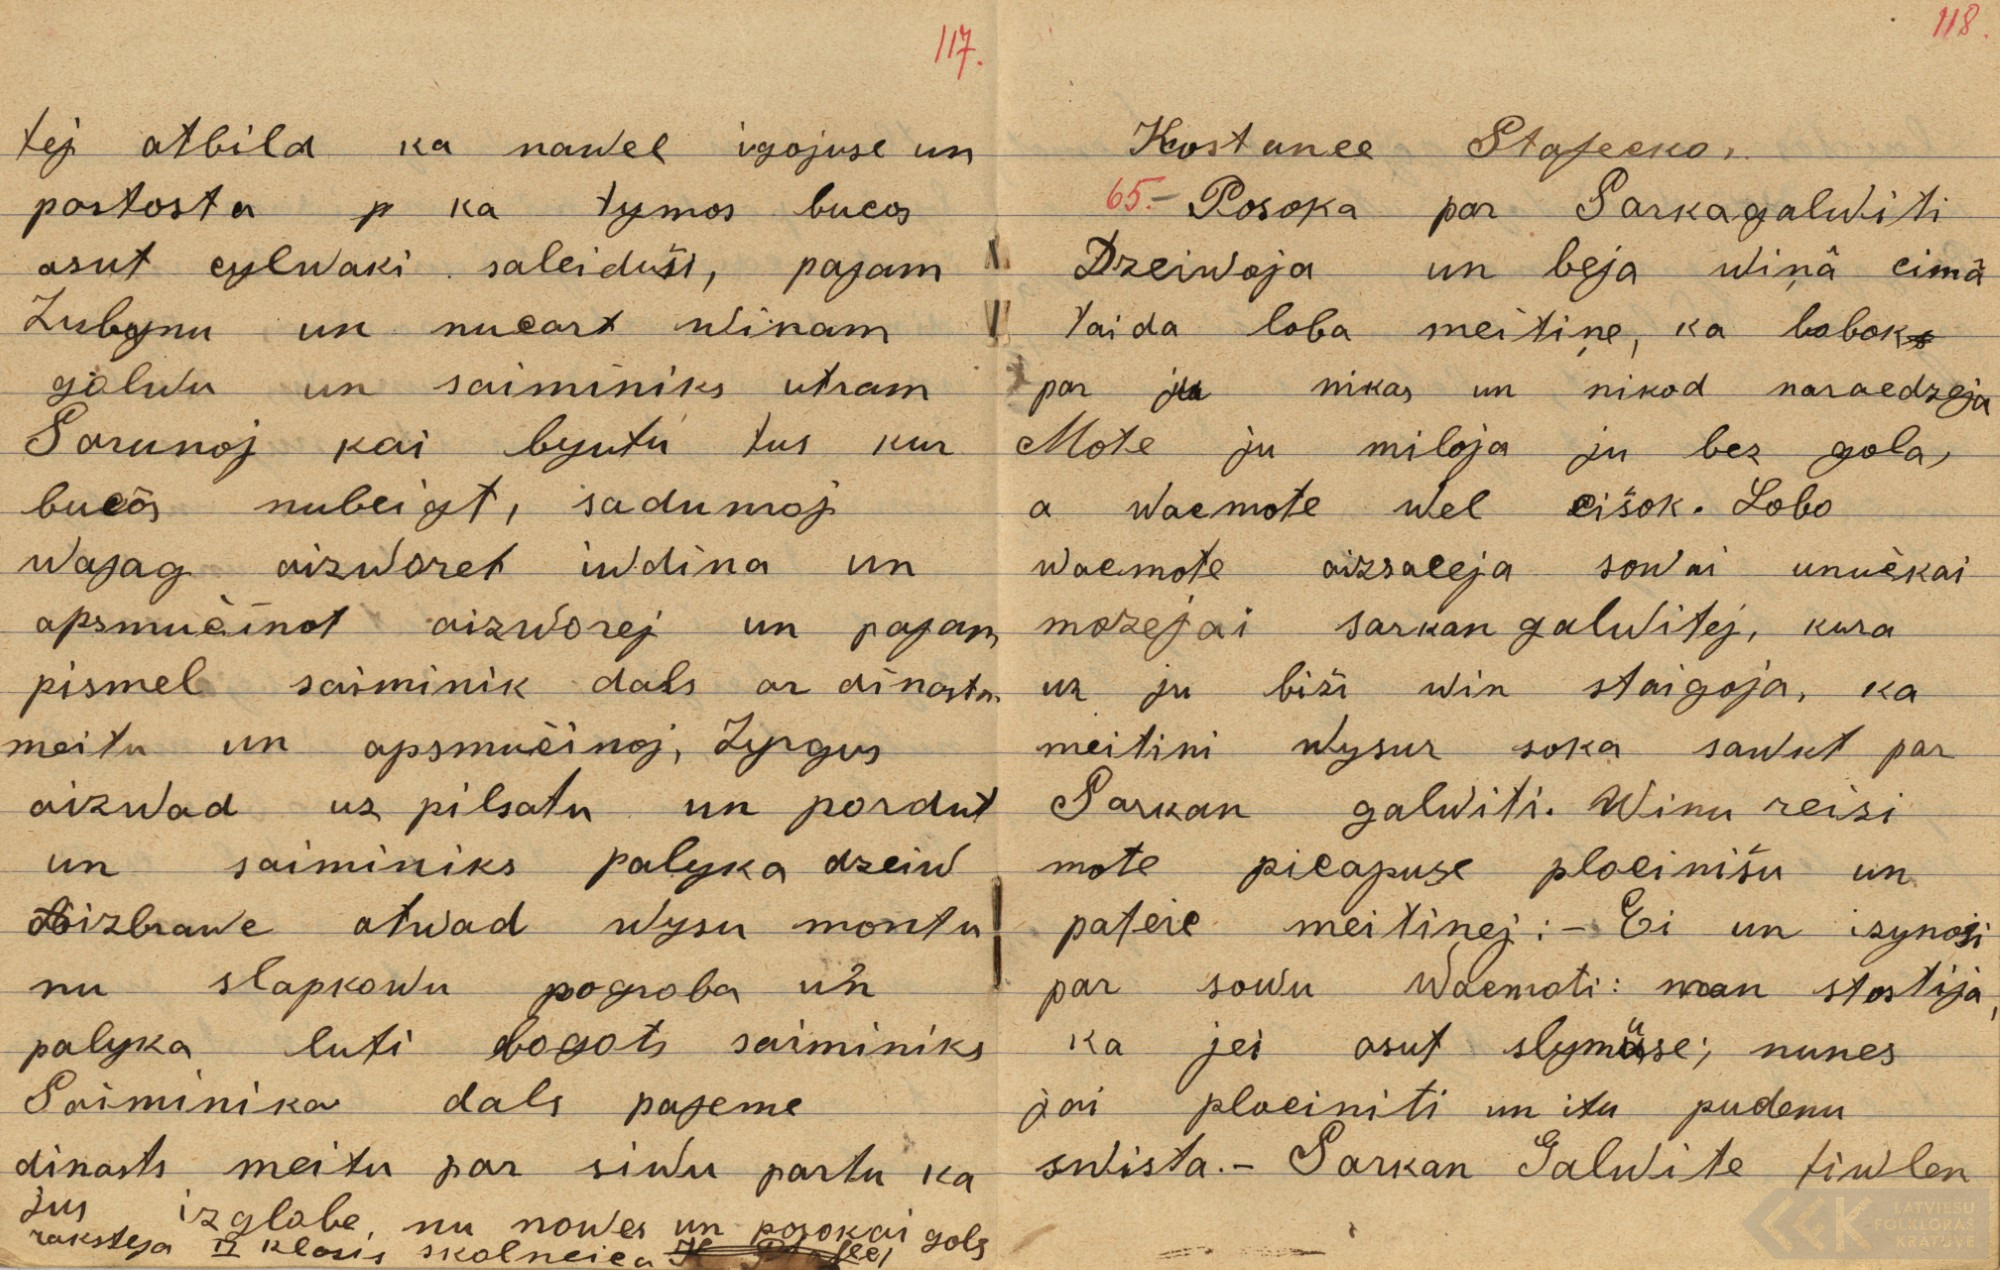 117.
tej atbild ka nawel igojuse un
postosta p ka tymos bucos
asut cylwaki saleiduši, pajam
Zubynu un nucart winam
golwu un saiminiks utram
Sarunoj kai byutu tus kur
bucos nubeigt, sadumoj
wajag aizworet iwdina un
apsmucinot aizworej un pajam
pismel saiminik dals ar dinasta
meitu un apsmucinoj, Zyrgus
aizwad uz pilsatu un pordut
un saiminiks palyka dzeiw
Aizbrawe atwad wysu montu
nu slapkowu pogroba un
palyka luti bogots saiminiks
Saiminika dals pajeme
dinasts meitu par siwu partu ka
jus izglobe, nu nowes un posokai gols
raksteja II klasis skolneica
118.
Kostunce Stafecko.
65.- Posoka par Sarkagalwiti
Dzeiwoja un beja winâ cimâ
taida loba meitiņe, ka lobok
par ju nikas un nikod naraedzeja
Mote ju miloja ju bez gola,
a wacmote wel cišok. Lobo
wacmote aizsaceja sowai unučkai
mozejai sarkan galwitej, kura
uz ju biži win staigoja, ka
meitini wysur soka sawkt par
Sarkan galwiti. Winu reizi
mote picapuse plocinišu un
pateic meitinej:- Ei un izynoji
par sowu Wacmoti: man stostija,
ka jei asut slymuse; nunes
jai plociniti un itu pudenu
swista.- Sarkan Galwite tiwlen
LATVIEŠU
FOLKLORAS
KRĀTUVE